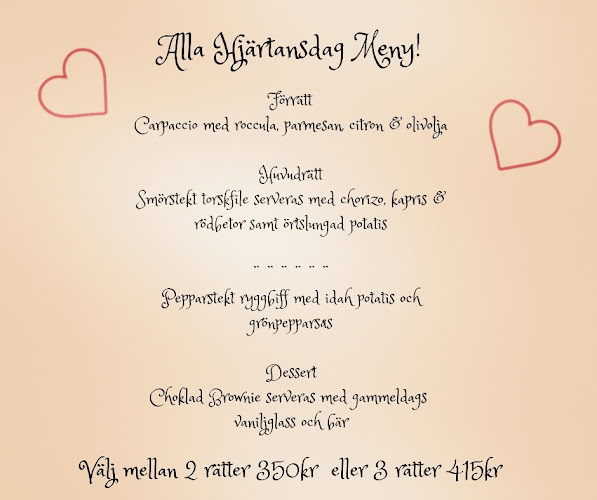 Alla Hjärtansdag Meny!
Förrätt
Carpaccio med roccula, parmesan, citron & olivolja
Huvudrätt
Smörstekt torskfile serveras med chorizo, kapris &
rödbetor samt örtslungad potatis
~ ~ ~ ~ ~ ~
Pepparstekt ryggbiff med idah potatis och
grönpepparsås
Dessert
Choklad Brownie serveras med gammeldags
vaniljglass och bär
Välj mellan 2 rätter 350kr eller 3 rätter 415kr